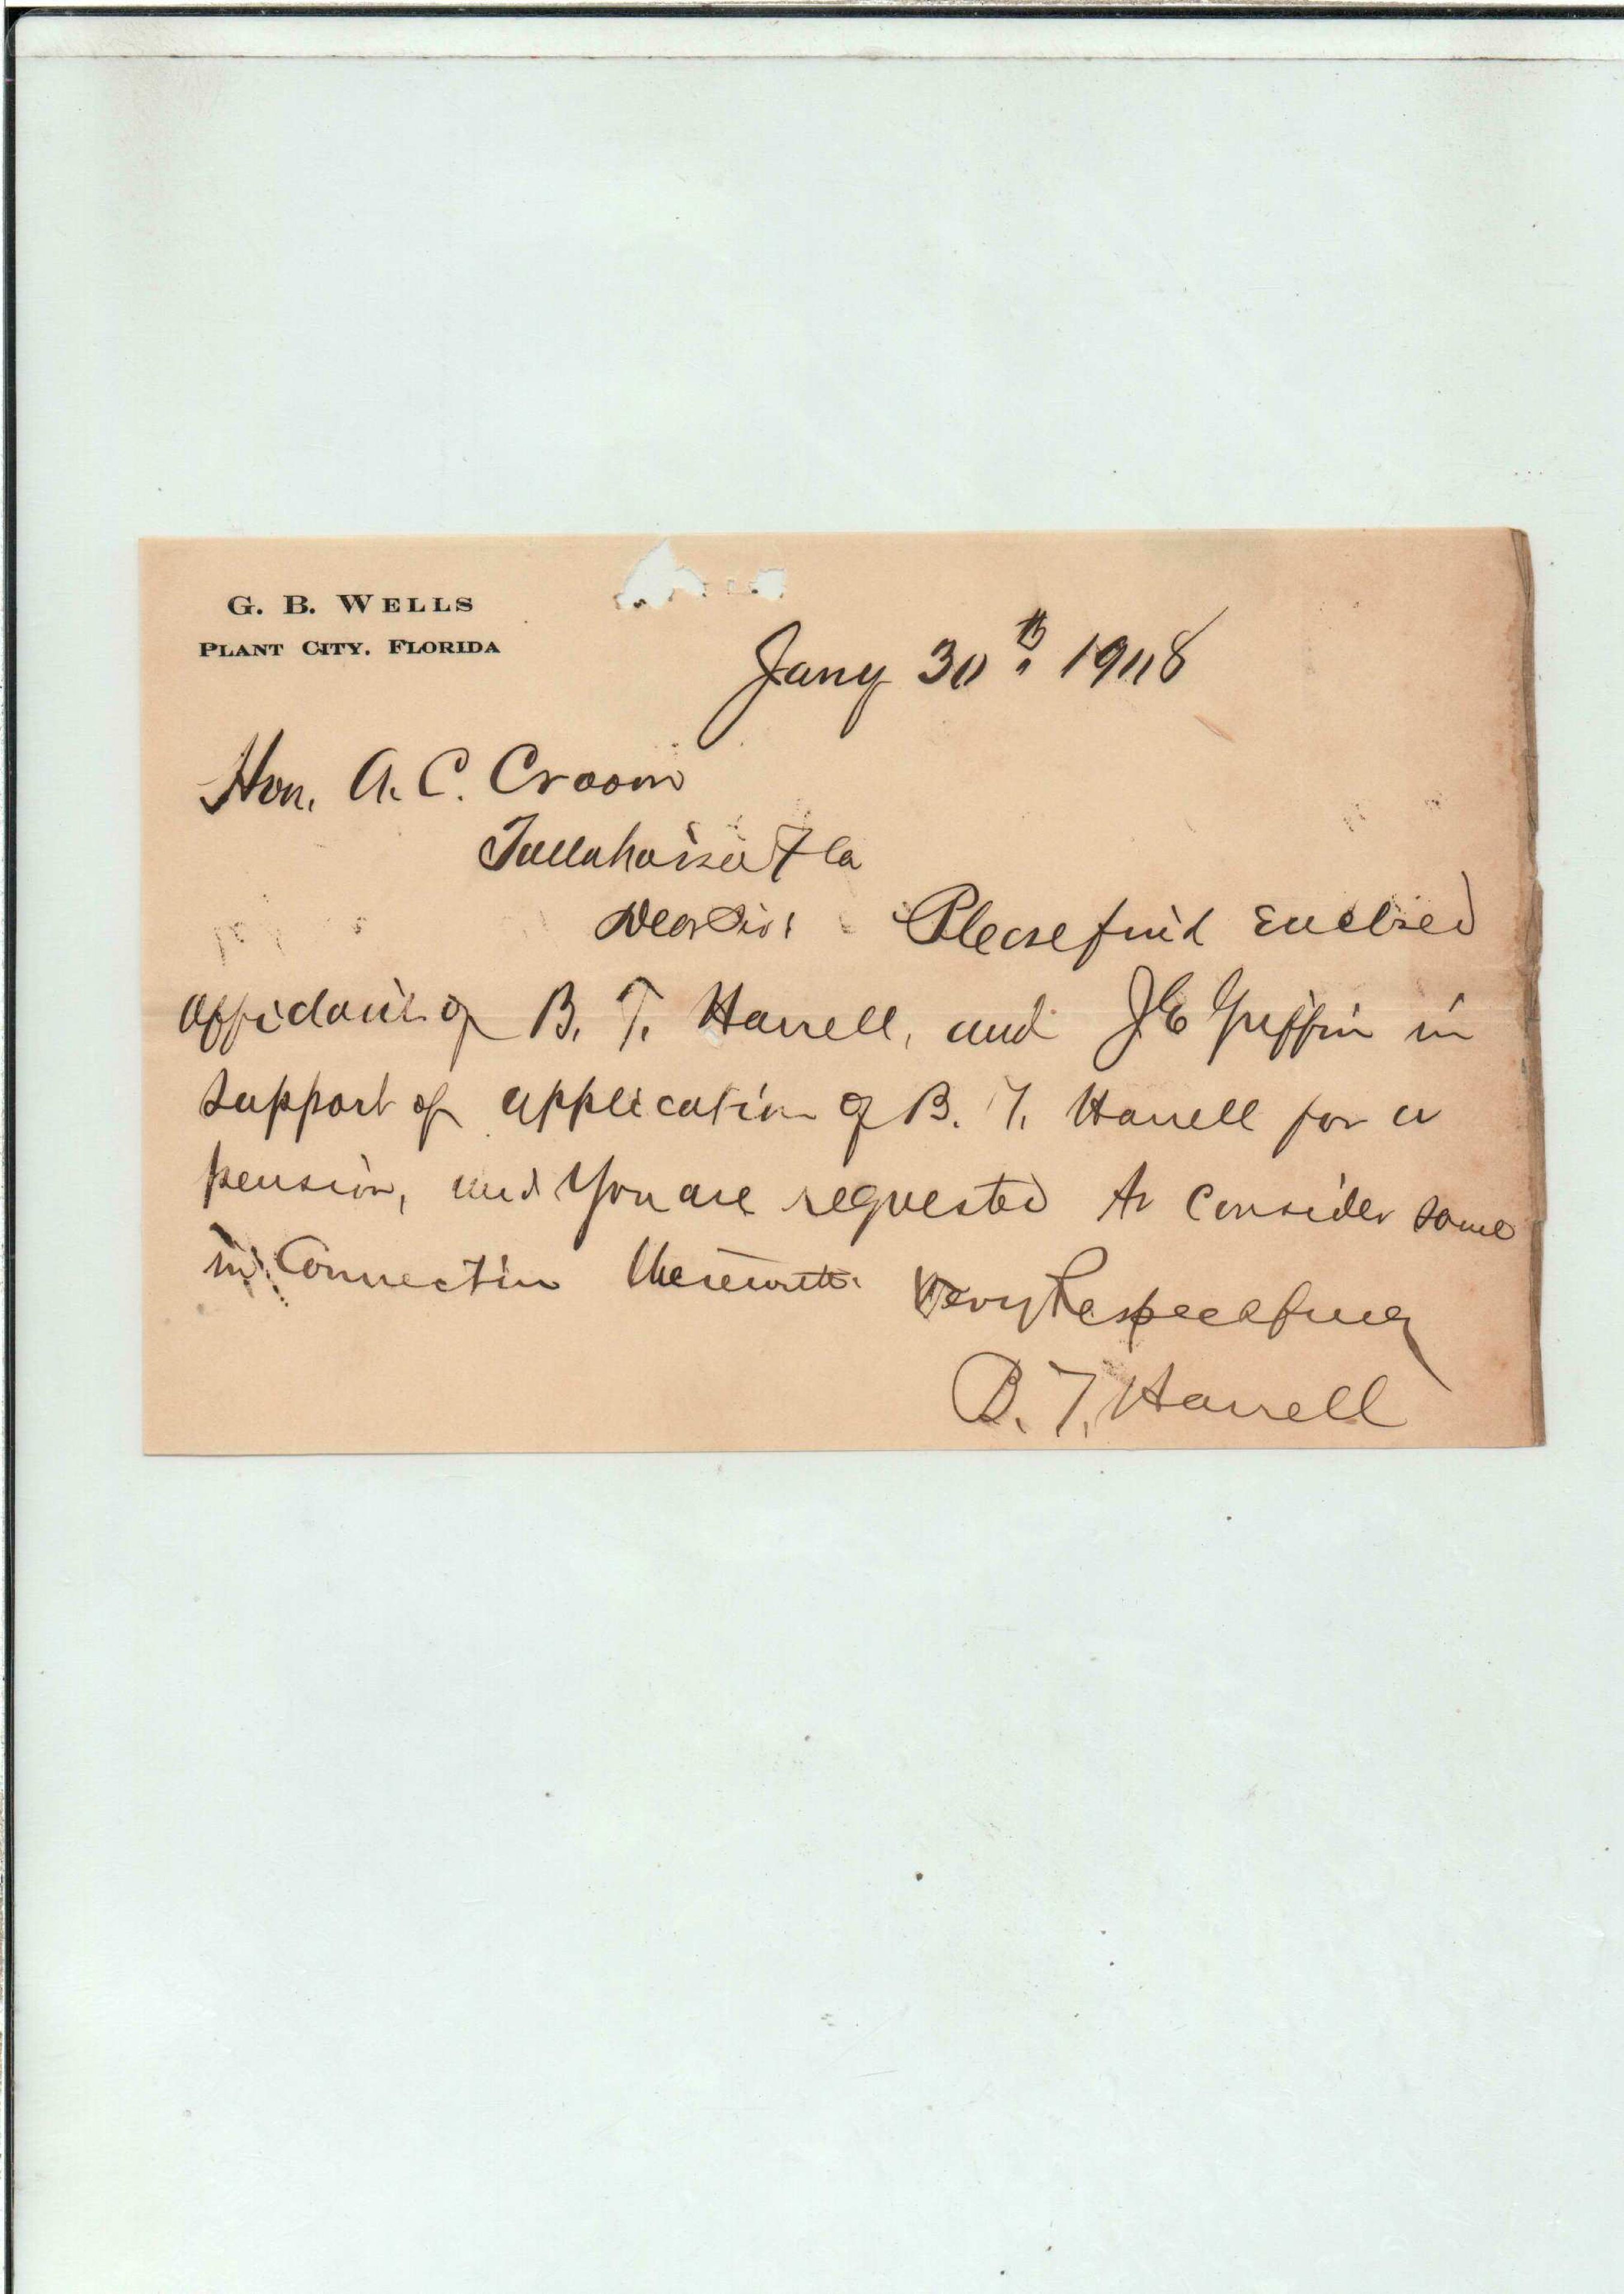 G. B. WELLS
PLANT CITY, FLORIDA
Jany 30th 1908
Hon. A. C. Croom
Tallahassee Fla
Dear Sir: Please find enclosed
affidavit of B. T. Harrell, and J E Griffin in
support of application of B. T. Harrell for a
pension, and you are requested to consider same
in connection therewith.
Very Respectfully
B. T. Harrell